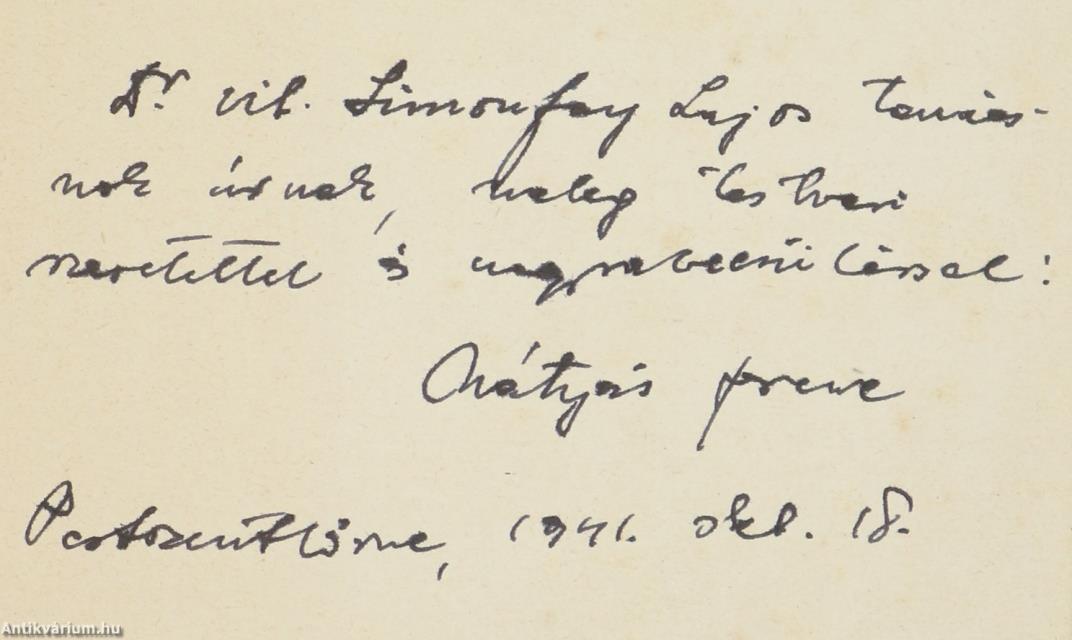 Dr. vit. Simonfay Lajos tanács-
nok úrnak, meleg testvéri
szeretettel és nagyrabecsüléssel:
Mátyás Ferenc
Pestszentlőrinc, 1941. okt. 18.
Antikvárium.hu